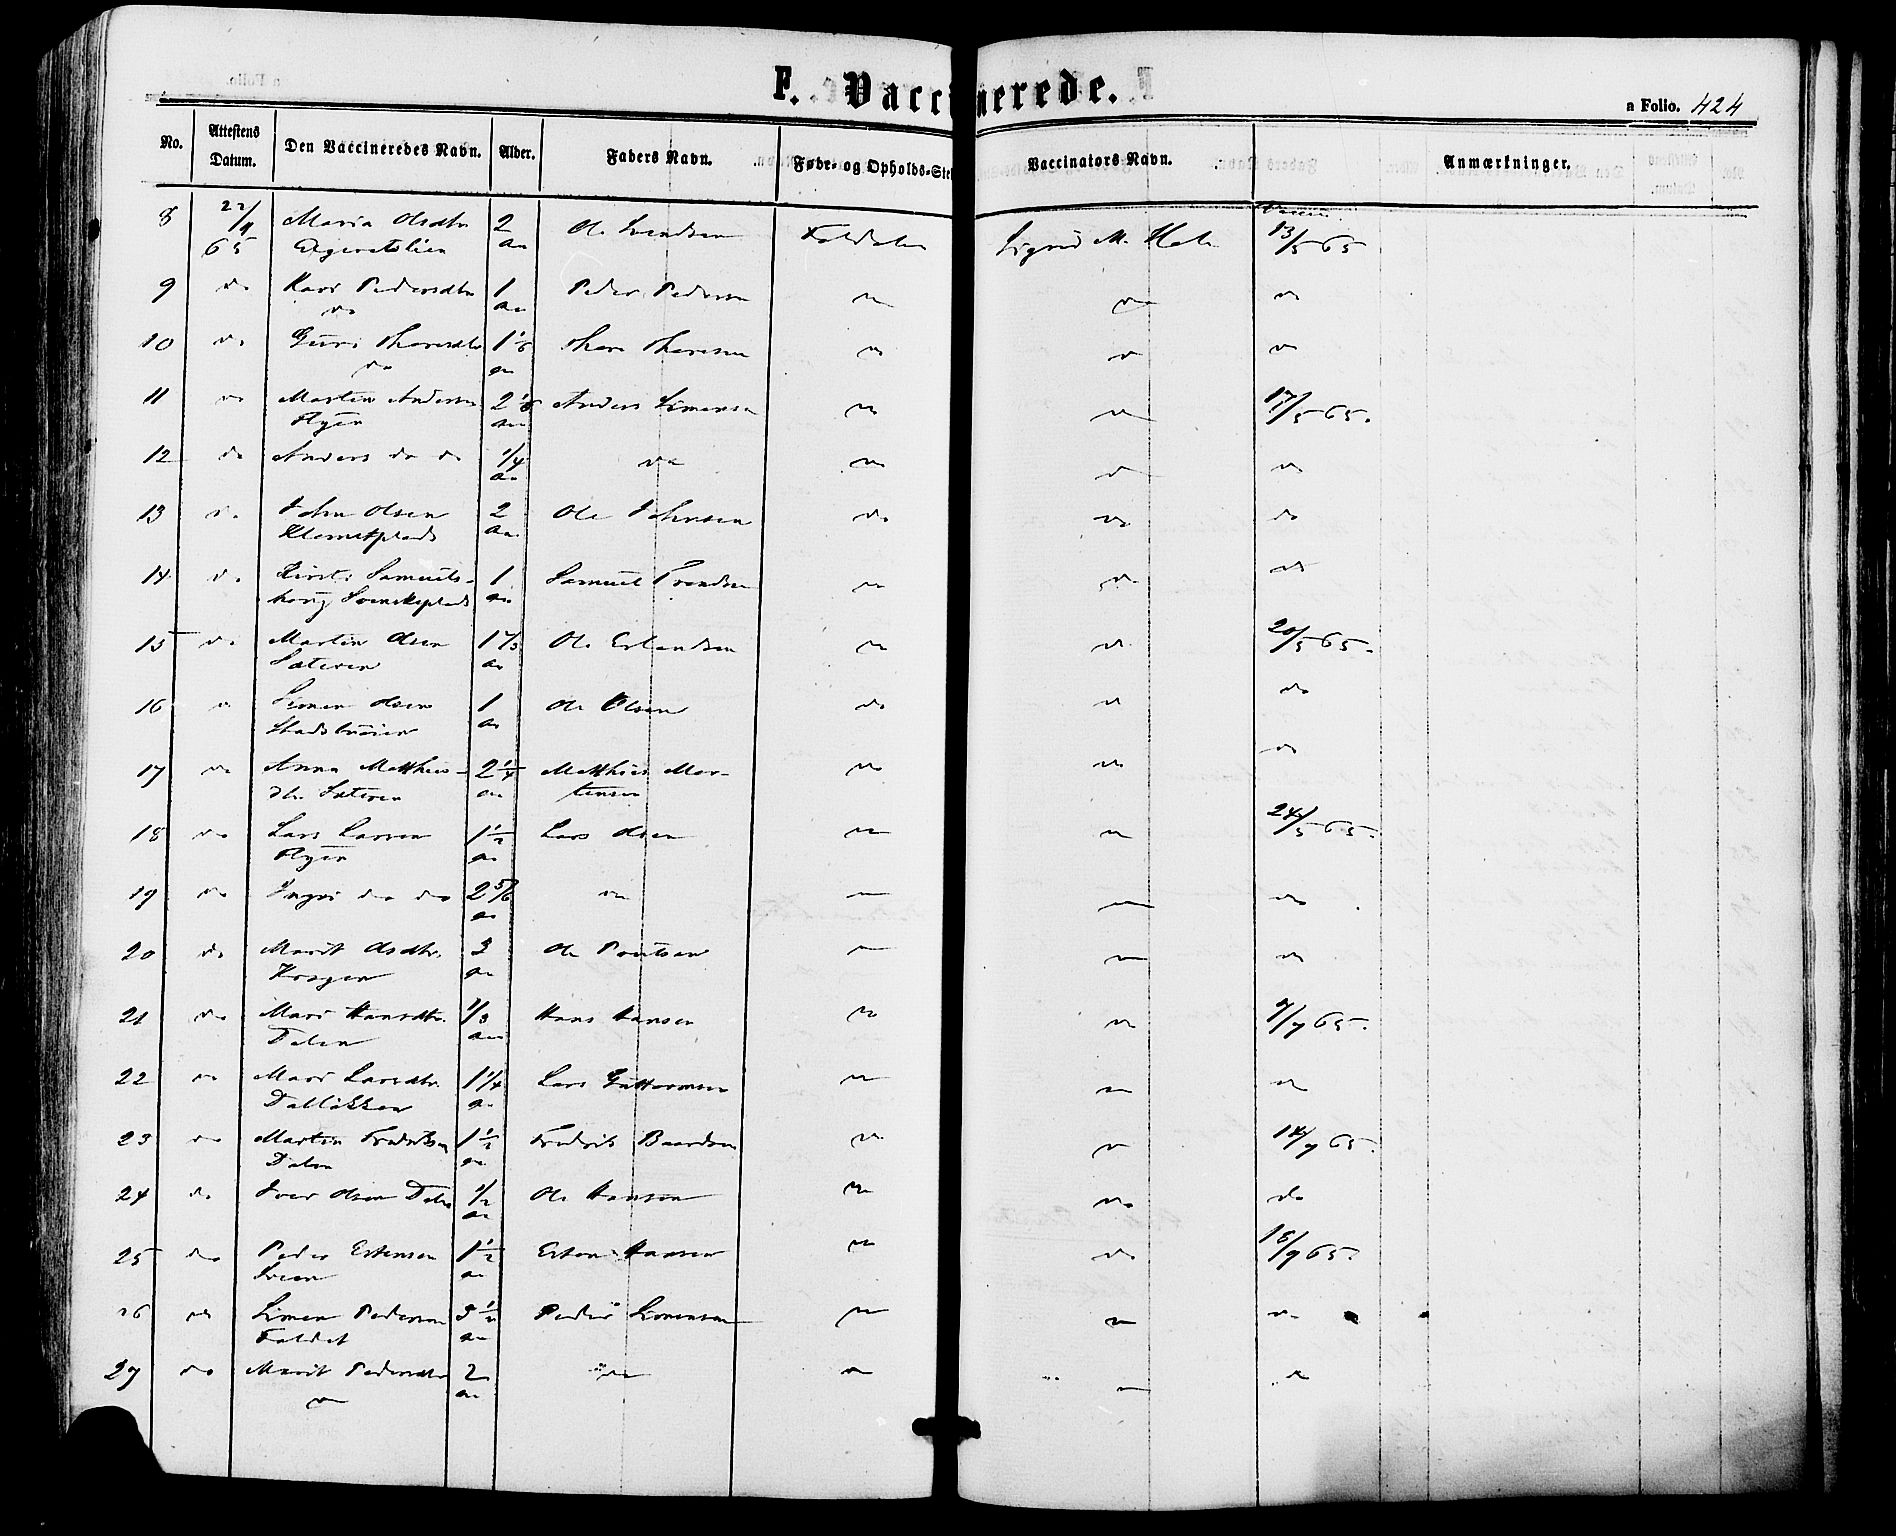 F. Vaccinerede.
a Folio. 424
No. Attestens Datum. Den Vaccineredes Navn. Alder. Faders Navn. Føde- og Opholds-Ste Vaccinators Navn. Anmærkninger.
8 22/9 65 Maria Olsdtr 2 Aa Ole Svendsen Foldalen Sigrid M. 13/5 65
9 do Kari Pedersdtr do 1 Aa Peder Pedersen do do do
10 do Guri Thoresdtr do 1 1/6 Aa Thore Thoresen do do do
11 do Morten Andersen Ryen 2 1/6 Aa Anders Simensen do do 17/5 65.
12 do Anders do do 1/4 Aa do do do do
13 do John Olsen 2 Aa Ole Johnsen do do do
14 do Kirsti Samuels- 1 Aa Samuel Trondsen do do do
15 do Martin Olsen Sæteren 1 Aa Ole Erlandsen do do 20/5 65.
16 do Simen Olsen 1 Aa Ole Olsen do do do
17 do Anna Matthias- 2 1/4 Matthias Mor- do do do
dtr. Sæteren Aa tensen
18 do Lars Larsen Ryen 1 1/2 Aa Lars Olsen do do 24/5 65.
19 do Ingri do do 2 5/6 Aa do do do do
20 do Marit Olsdtr. Krogen 3 Aa Ole Poulsen do do do
21 do Mari Hansdtr. Dalen 1/3 Aa Hans Hansen do do 9/7 65.
22 do Mari Larsdtr. Dalløkken 1 1/4 Aa Lars Guttormsen do do do
23 do Martin Fredriksen Dalen 1 1/2 Aa Fredrik Baardsen do do 14/7 65.
24 do Iver Olsen Dalen 1/2 Aa Ole Hansen do do do
25 do Peder Estensen 1 1/2 Aa Esten Hansen do do 18/9 65.
26 do Simen Pedersen Foldal 3 1/2 Aa Peder Simensen do do do
27 do Marit Pedersdtr do 2 Aa do do do do